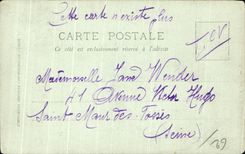 Cette carte n'existe plus
CARTE POSTALE
Ce côté est exclusivement réservé à l'adresse
T.C.V
Mademoiselle Jane Wender
41 Avenue Victor Hugo
Saint Maur des Fossés
(Seine)